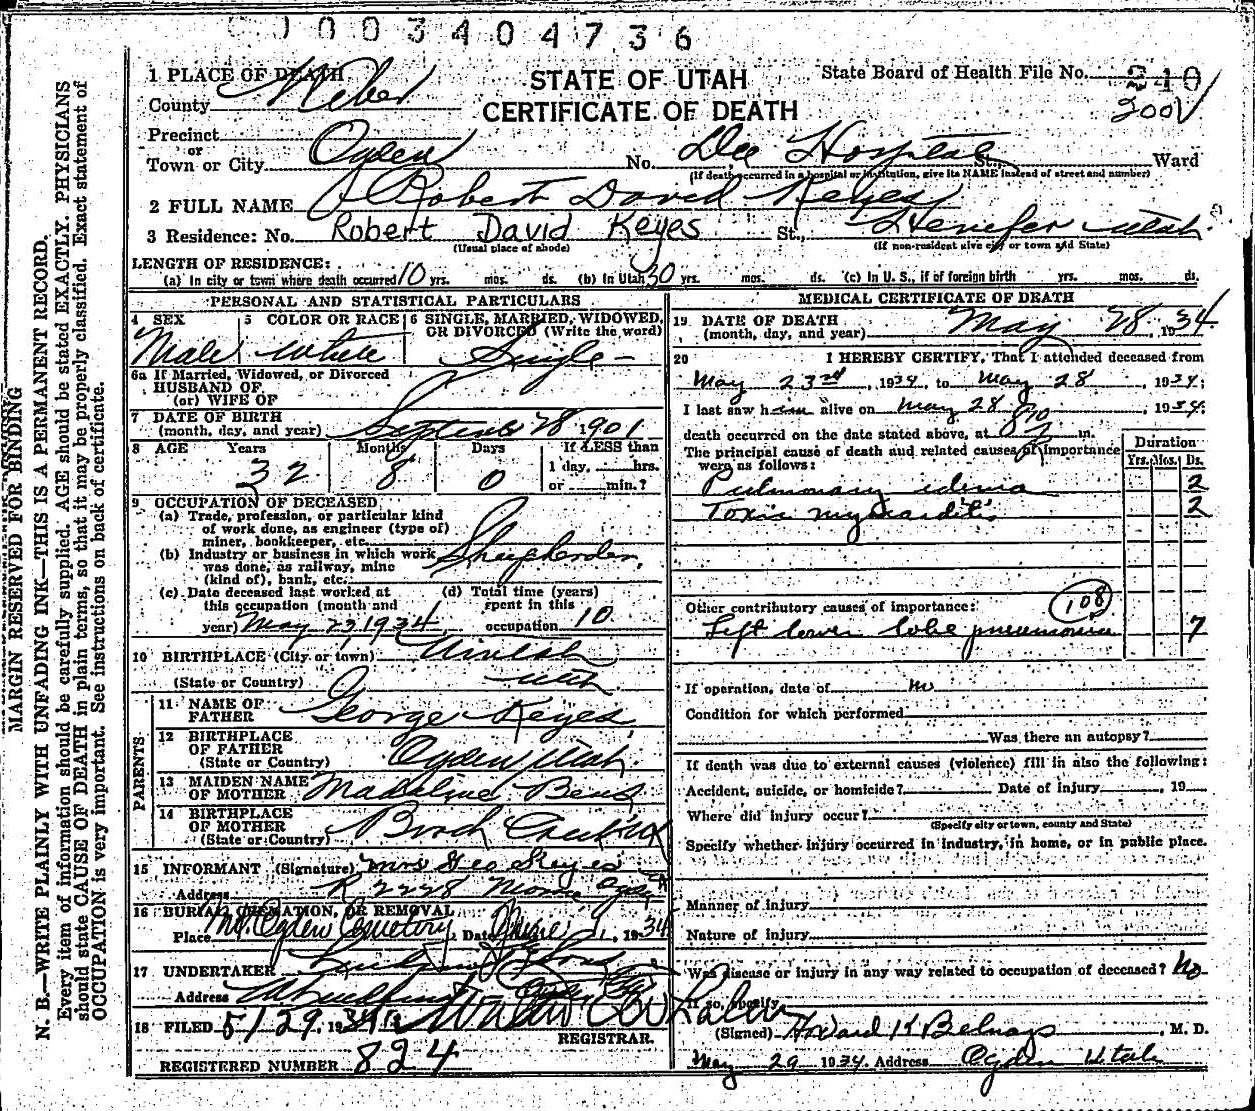 003404736
1 PLACE OF DEATH
County Weber
STATE OF UTAH
CERTIFICATE OF DEATH
State Board of Health File No. 240
200
Precinct
or
Town or City Ogden No. Dee Hospital St., Ward
(If death occurred in a hospital or institution, give its NAME instead of street and number)
2 FULL NAME Robert David Keyes
3 Residence: No. Robert David Keyes St., Henefer Utah.
(Usual place of abode) (If non-resident give city or town and State)
LENGTH OF RESIDENCE:
(a) In city or town where death occurred 10 yrs. mos. ds. (b) In Utah 30 yrs. mos. ds. (c) In U. S., if of foreign birth yrs. mos. ds.
PERSONAL AND STATISTICAL PARTICULARS
4 SEX Male
5 COLOR OR RACE White
6 SINGLE, MARRIED, WIDOWED, OR DIVORCED (Write the word) Single
6a If Married, Widowed, or Divorced
HUSBAND OF
(or) WIFE OF
7 DATE OF BIRTH
(month, day, and year) September 28 1901
8 AGE Years 32 Months 8 Days 0 If LESS than
1 day, hrs.
or min.?
9 OCCUPATION OF DECEASED
(a) Trade, profession, or particular kind
of work done, as engineer (type of)
miner, bookkeeper, etc.
Sheepherder.
(b) Industry or business in which work
was done, as railway, mine
(kind of), bank, etc.
(c) Date deceased last worked at
this occupation (month and
year) May 23, 1934
(d) Total time (years)
spent in this
occupation 10
10 BIRTHPLACE (City or town) Uintah
(State or Country) Utah.
PARENTS
11 NAME OF
FATHER George Keyes
12 BIRTHPLACE
OF FATHER
(State or Country) Ogden, Utah.
13 MAIDEN NAME
OF MOTHER Madaline
14 BIRTHPLACE
OF MOTHER
(State or Country)
15 INFORMANT (Signature) Mrs Geo Keyes
Address R 2228 Ogden
16 BURIAL, CREMATION, OR REMOVAL
Place Mt. Ogden Cemetery, Date June 1, 1934
17 UNDERTAKER
Address
18 FILED 5/29, 1934
REGISTRAR.
REGISTERED NUMBER 824
MEDICAL CERTIFICATE OF DEATH
19 DATE OF DEATH
(month, day, and year) May 28, 1934
20 I HEREBY CERTIFY, That I attended deceased from
May 23rd, 1934, to May 28, 1934;
I last saw him alive on May 28, 1934;
death occurred on the date stated above, at m.
The principal cause of death and related causes of importance
were as follows:
Duration
Yrs. Mos. Ds.
Pulmonary edema 2
Toxic myocarditis 2
Other contributory causes of importance: 108
Left lower lobe pneumonia 7
If operation, date of
Condition for which performed
Was there an autopsy?
If death was due to external causes (violence) fill in also the following:
Accident, suicide, or homicide? Date of injury , 19
Where did injury occur?
(Specify city or town, county and State)
Specify whether injury occurred in industry, in home, or in public place.
Manner of injury
Nature of injury
Was disease or injury in any way related to occupation of deceased? No
If so, specify
(Signed) Howard K Belnap, M. D.
May 29 1934. Address Ogden Utah
MARGIN RESERVED FOR BINDING
N. B.—WRITE PLAINLY WITH UNFADING INK—THIS IS A PERMANENT RECORD.
Every item of information should be carefully supplied. AGE should be stated EXACTLY. PHYSICIANS
should state CAUSE OF DEATH in plain terms, so that it may be properly classified. Exact statement of
OCCUPATION is very important. See instructions on back of certificate.